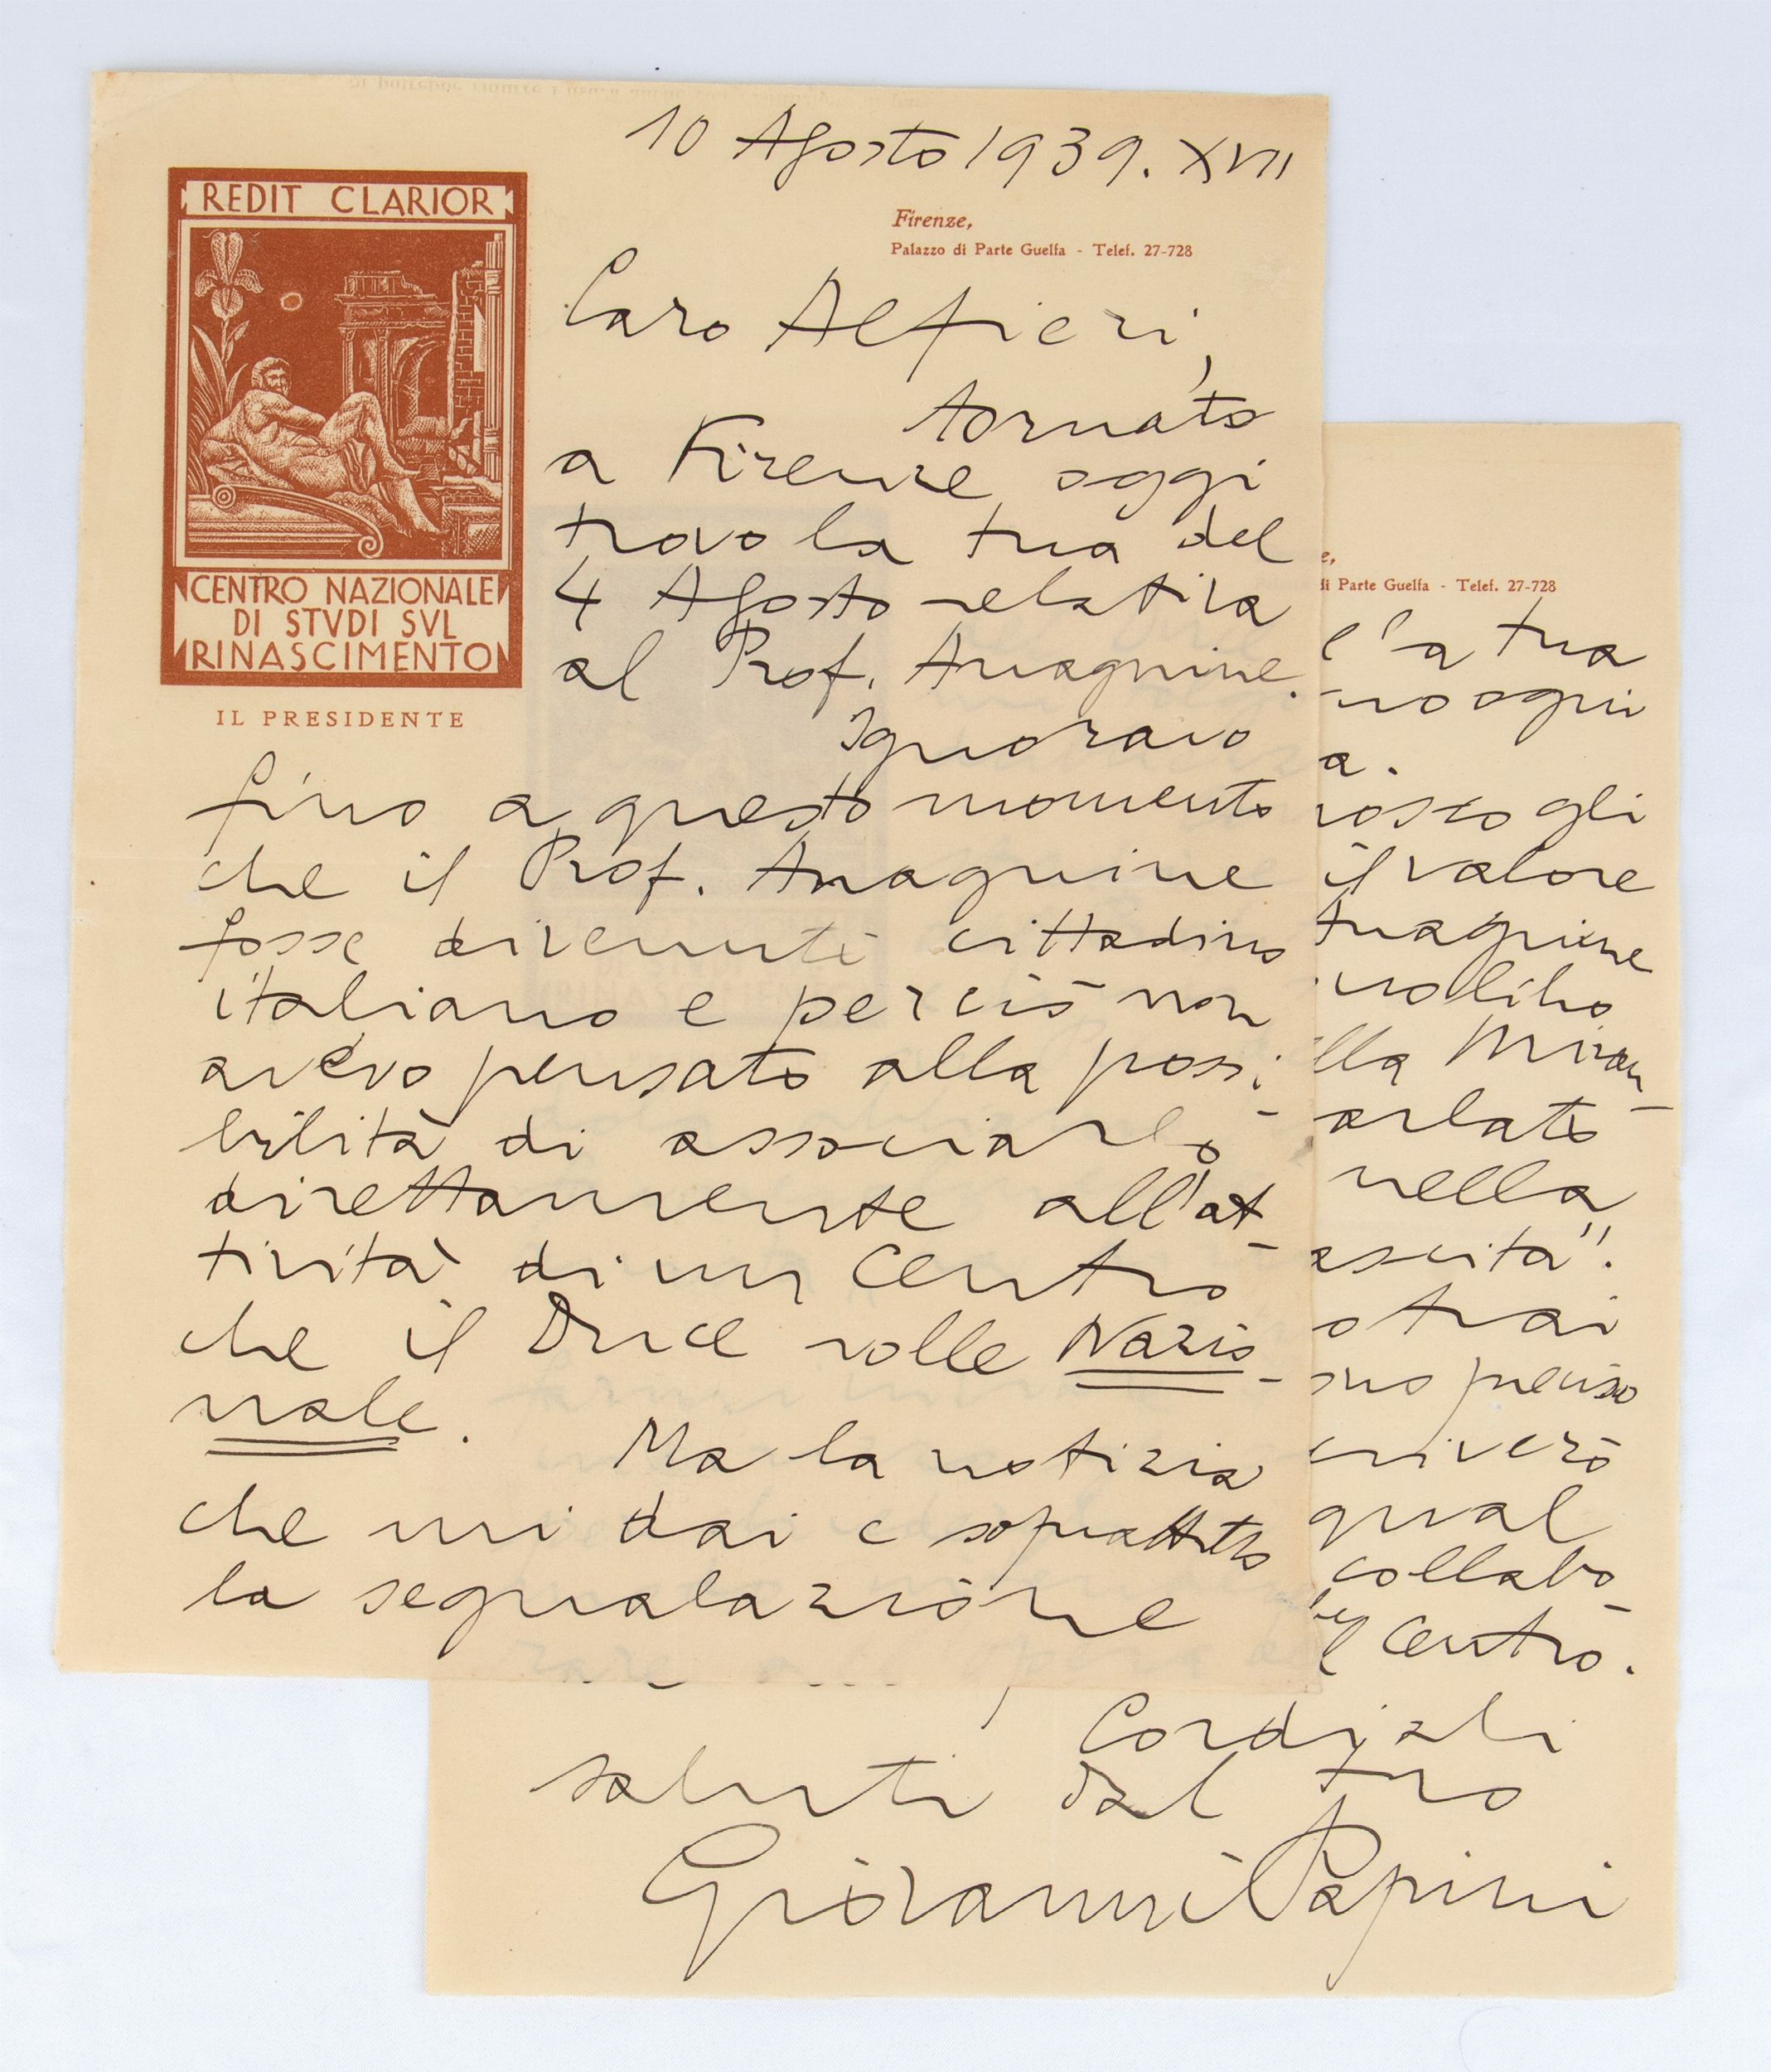 10 Agosto 1939. XVII
REDIT CLARIOR
CENTRO NAZIONALE
DI STVDI SVL
RINASCIMENTO
IL PRESIDENTE
Firenze,
Palazzo di Parte Guelfa - Telef. 27-728
Caro Alfieri,
tornato
a Firenze oggi
trovo la tua del
4 Agosto relativa
al Prof. Anagnine.
Ignoravo
fino a questo momento
che il Prof. Anagnine
fosse divenuto cittadino
italiano e perciò non
avevo pensato alla possi-
bilità di associarlo
direttamente all'at-
tività di un Centro
che il Duce volle Nazio-
nale.
Ma la notizia
che mi dai e soprattutto
la segnalazione
e,
di Parte Guelfa - Telef. 27-728
tua
ogni
a.
gli
il valore
nagnine
lla Miran-
arlato
nella
ascita".
trai
preciso
criverò
qual
collabo-
Centro.
Cordiali
saluti dal tuo
Giovanni Papini